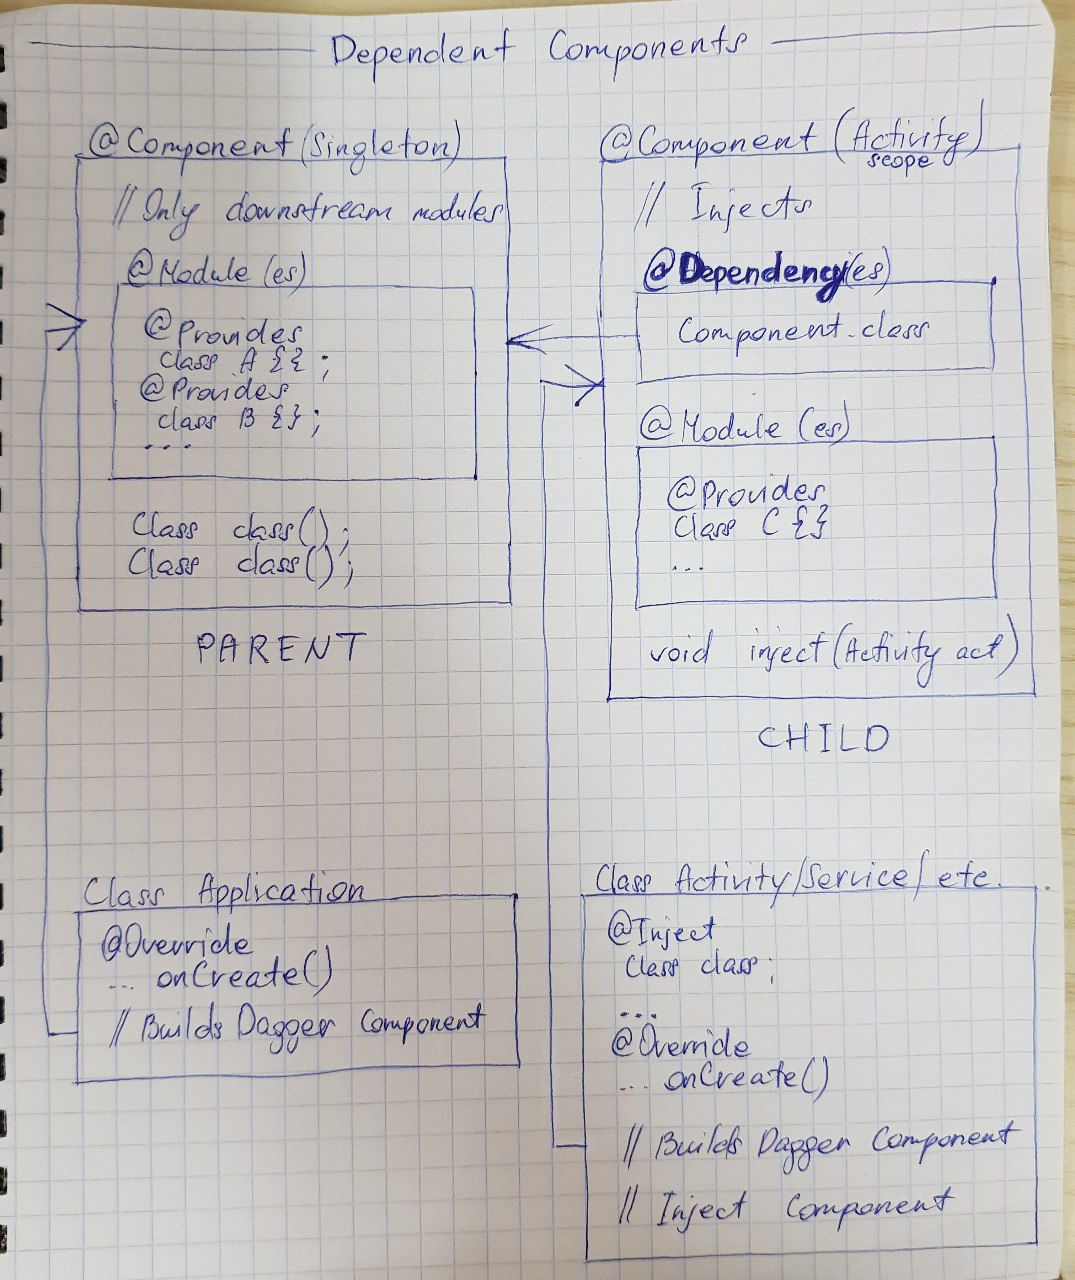 Dependent Components
@Component (Singleton)
// Only downstream modules
@Module (es)
@Provides
class A {};
@Provides
class B {};
...
Class class();
Class class();
PARENT
@Component (Activity)
scope
// Injects
@Dependency(es)
Component.class
@Module (es)
@Provides
Class C {}
...
void inject(Activity act)
CHILD
Class Application
@Override
... onCreate()
// Builds Dagger Component
Class Activity/Service/etc.
@Inject
Class class;
...
@Override
... onCreate()
// Builds Dagger Component
// Inject Component